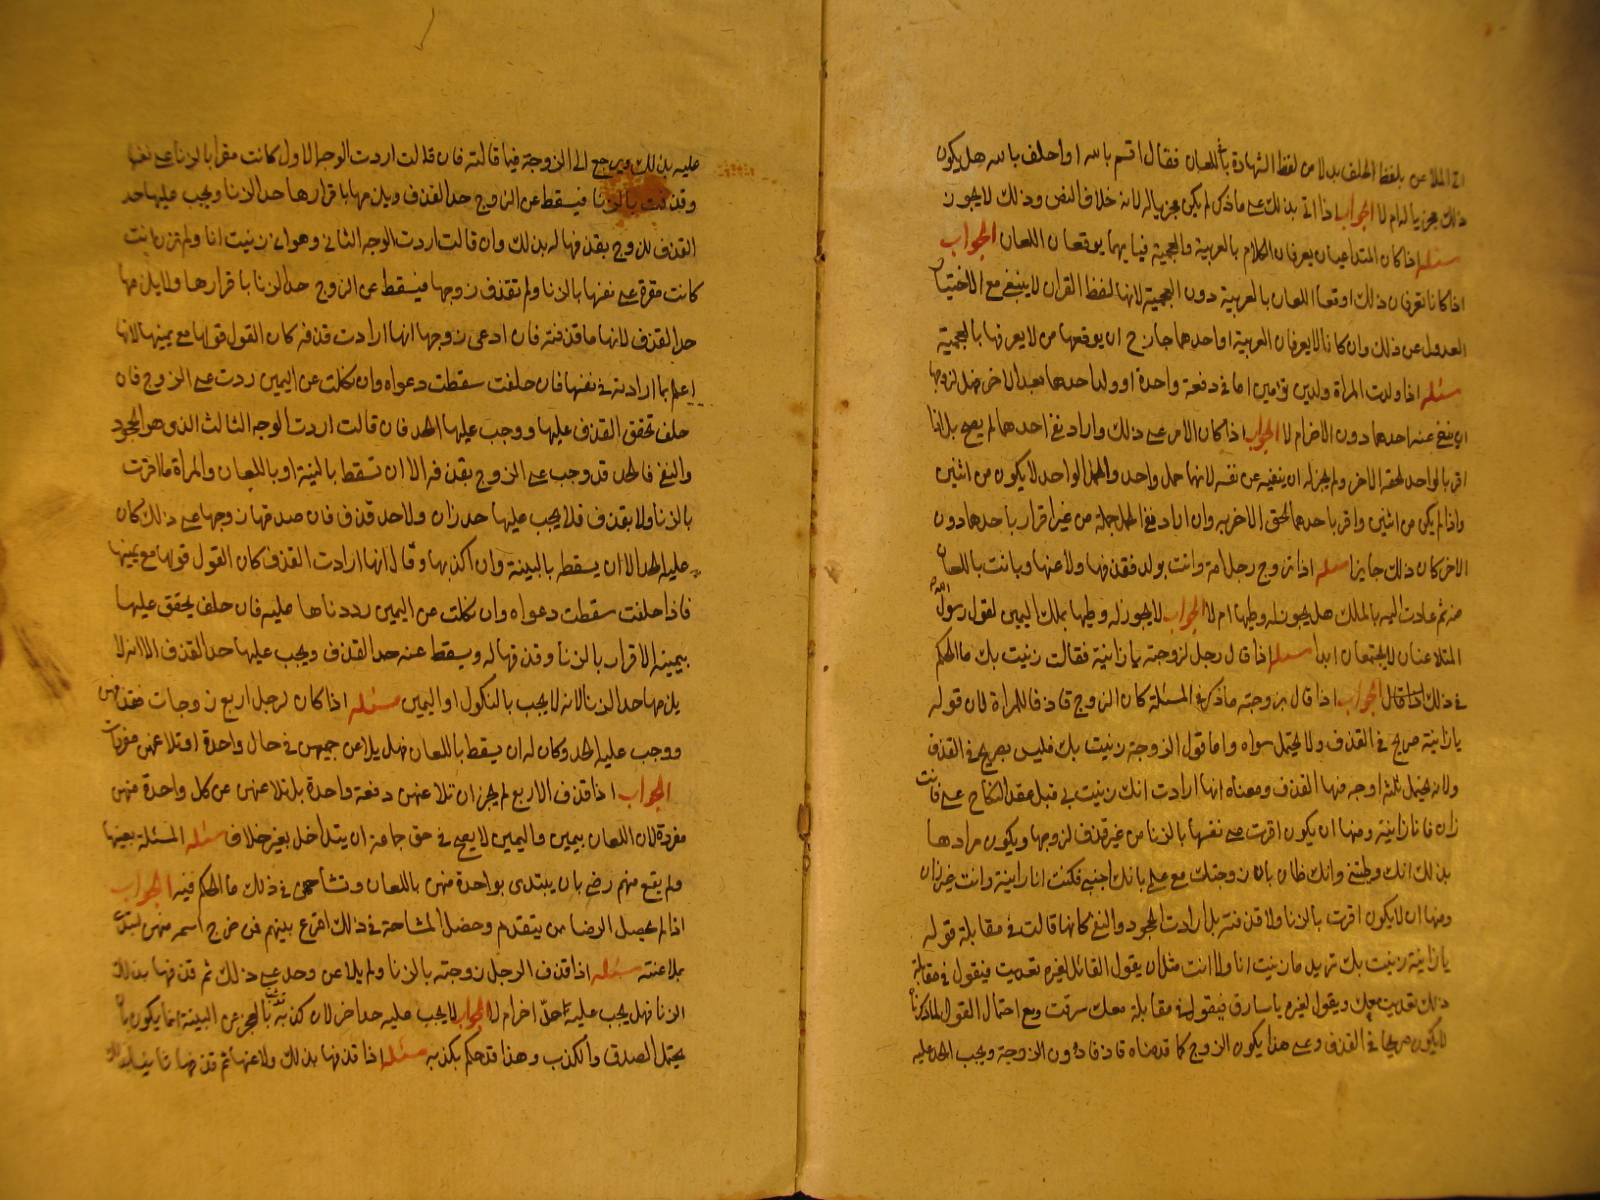 اتى الملاعن بلفظ الحلف بدلا من لفظ الشهادة باللعان فقال اقسم بالله او احلف بالله هل يكون
ذلك مجزيا له ام لا الجواب اذا اتى بدلك على ما ذكر لم يكن مجزيا له لانه خلاف النص وذلك لا يجوز
مسئله اذا كان المتلاعنان يعرفان الكلام بالعربية والعجمية فبايهما يوقعان اللعان الجواب
اذا كانا يعرفان ذلك اوقعا اللعان بالعربية دون العجمية لانها لفظ القران لا ينبغى مع الاختيار
العدول عن ذلك وان كانا لا يعرفان العربية او احدهما جاز ان يوقعها من لا يعرفها بالعجمية
مسئله اذا ولدت المراة ولدين توامين اما فى دفعة واحدة او ولد احدهما بعد الاخر هل لزوجها
ان ينفى عنه احدهما دون الاخر ام لا الجواب اذا كان الامر على ذلك واراد نفى احدهما لم يصح بل اذا
اقر بالواحد لحقه الاخر ولم يجز له ان ينفيه عن نفسه لانهما حمل واحد والحمل الواحد لا يكون من اثنين
واذا لم يكن من اثنين واقر باحدهما لحق الاخر به وان اراد نفى الحمل جملة من غير اقرار باحدهما دون
الاخر كان ذلك جايزا مسئله اذا تزوج رجل امة واتت بولد فقذفها ولاعنها وبانت باللعان
منه ثم عادت اليه بالملك هل يجوز له وطيها ام لا الجواب لا يجوز له وطيها بملك اليمين لقول رسول الله
المتلاعنان لا يجتمعان ابدا مسئله اذا قال رجل لزوجته يا زانية فقالت زنيت بك ما الحكم
فى ذلك الجواب اذا قال لزوجته ما ذكر فى المسئلة كان الزوج قاذفا للمراة لان قوله
يا زانية صريح فى القذف ولا يحتمل سواه واما قول الزوجة زنيت بك فليس بصريح فى القذف
ولانه يحتمل ثلثة اوجه منها القذف ومعناه انها ارادت انك زنيت بى قبل عقد النكاح على فانت
زان فانا زانية ومنها ان يكون اقرت على نفسها بالزنا من غير قذف لزوجها ويكون مرادها
بذلك انك وطئتنى وانك ظان بان زوجتك مع علمى بانك اجنبى فكنت انا زانية وانت غير زان
ومنها ان لا يكون اقرت بالزنا ولا قذفته بل ارادت الجحود والنفى كانها قالت فى مقابلة قوله
يا زانية زنيت بك تريد ما زنيت انا ولا انت مثل ان يقول القائل لغيره تعديت فيقول فى مقابلة
ذلك تعديت معك ويقول لغيره يا سارق فيقول فى مقابلة معك سرقت ومع احتمال القول لما ذكرناه
لا يكون صريحا فى القذف وعلى هذا يكون الزوج كما قدمناه قاذفا دون الزوجة ويجب الحد عليه
عليه بذلك ويرجع الى الزوجة فيما قالته فان قالت اردت الوجه الاول كانت مقرا بالزنا على نفسها
وقذفت بالزنا فيسقط عن الزوج حد القذف ويلزمها باقرارها حد الزنا ويجب عليها حد
القذف للزوج بقذفها له بذلك وان قالت اردت الوجه الثانى وهو انى زنيت انا ولم تزن انت
كانت مقرة على نفسها بالزنا ولم تقذف زوجها فيسقط عن الزوج حد الزنا باقرارها ولا يلزمها
حد القذف لانها ما قذفته فان ادعى زوجها انها ارادت قذفه كان القول قولها مع يمينها لانها
اعلم بما ارادته فى نفسها فان حلفت سقطت دعواه وان نكلت عن اليمين ردت على الزوج فان
حلف تحقق القذف عليها ووجب عليها الحد فان قالت اردت الوجه الثالث الذى هو الجحود
والنفى فالحد قد وجب على الزوج بقذفه الا ان تسقط بالبينة او باللعان والمراة ما اقرت
بالزنا ولا بقذف فلا يجب عليها حد زان ولا حد قذف فان صدقها زوجها على ذلك كان
عليه الحد الا ان يسقطه بالبينة وان اكذبها وقال انها ارادت القذف كان القول قولها مع يمينها
فاذا حلفت سقطت دعواه وان نكلت عن اليمين رددناها عليه فان حلف يحقق عليها
بيمينه الاقرار بالزنا وقذفها له ويسقط عنه حد القذف ويجب عليها حد القذف الا انه لا
يلزمها حد الزنا لانه لا يجب بالنكول او اليمين مسئله اذا كان لرجل اربع زوجات فقذفهن
ووجب عليه الحد وكان له ان يسقط باللعان فهل يلاعن جميعهن فى حال واحدة او تلاعنهن مفردات
الجواب اذا قذف الاربع لم يجز ان تلاعنهن دفعة واحدة بل تلاعنهن عن كل واحدة منهن
مفردة لان اللعان يمين واليمين لا يصح فى حق جماعة ان يتداخل بغير خلاف مسئله المسئلة بعينها
ولم يقع منهم رضى بان يبتدى بواحدة منهن باللعان وتشاححن فى ذلك ما الحكم فيه الجواب
اذا لم يحصل الرضا من يتقدم وحضل المشاحة فى ذلك اقرع بينهم فمن خرج اسمه منهن ابتدى
بملاعنته مسئله اذا قذف الرجل زوجته بالزنا ولم يلاعن وحد على ذلك ثم قذفها بذلك
الزنا فهل يجب عليه حد اخر ام لا الجواب لا يجب عليه حد اخر لان كذبه ثبت بالعجز عن البينة انما يكون بما
يحتمل الصدق والكذب وهذا قد حكم بكذبه مسئله اذا قذفها بذلك ولاعنها ثم قذفها ثانيا بذلك